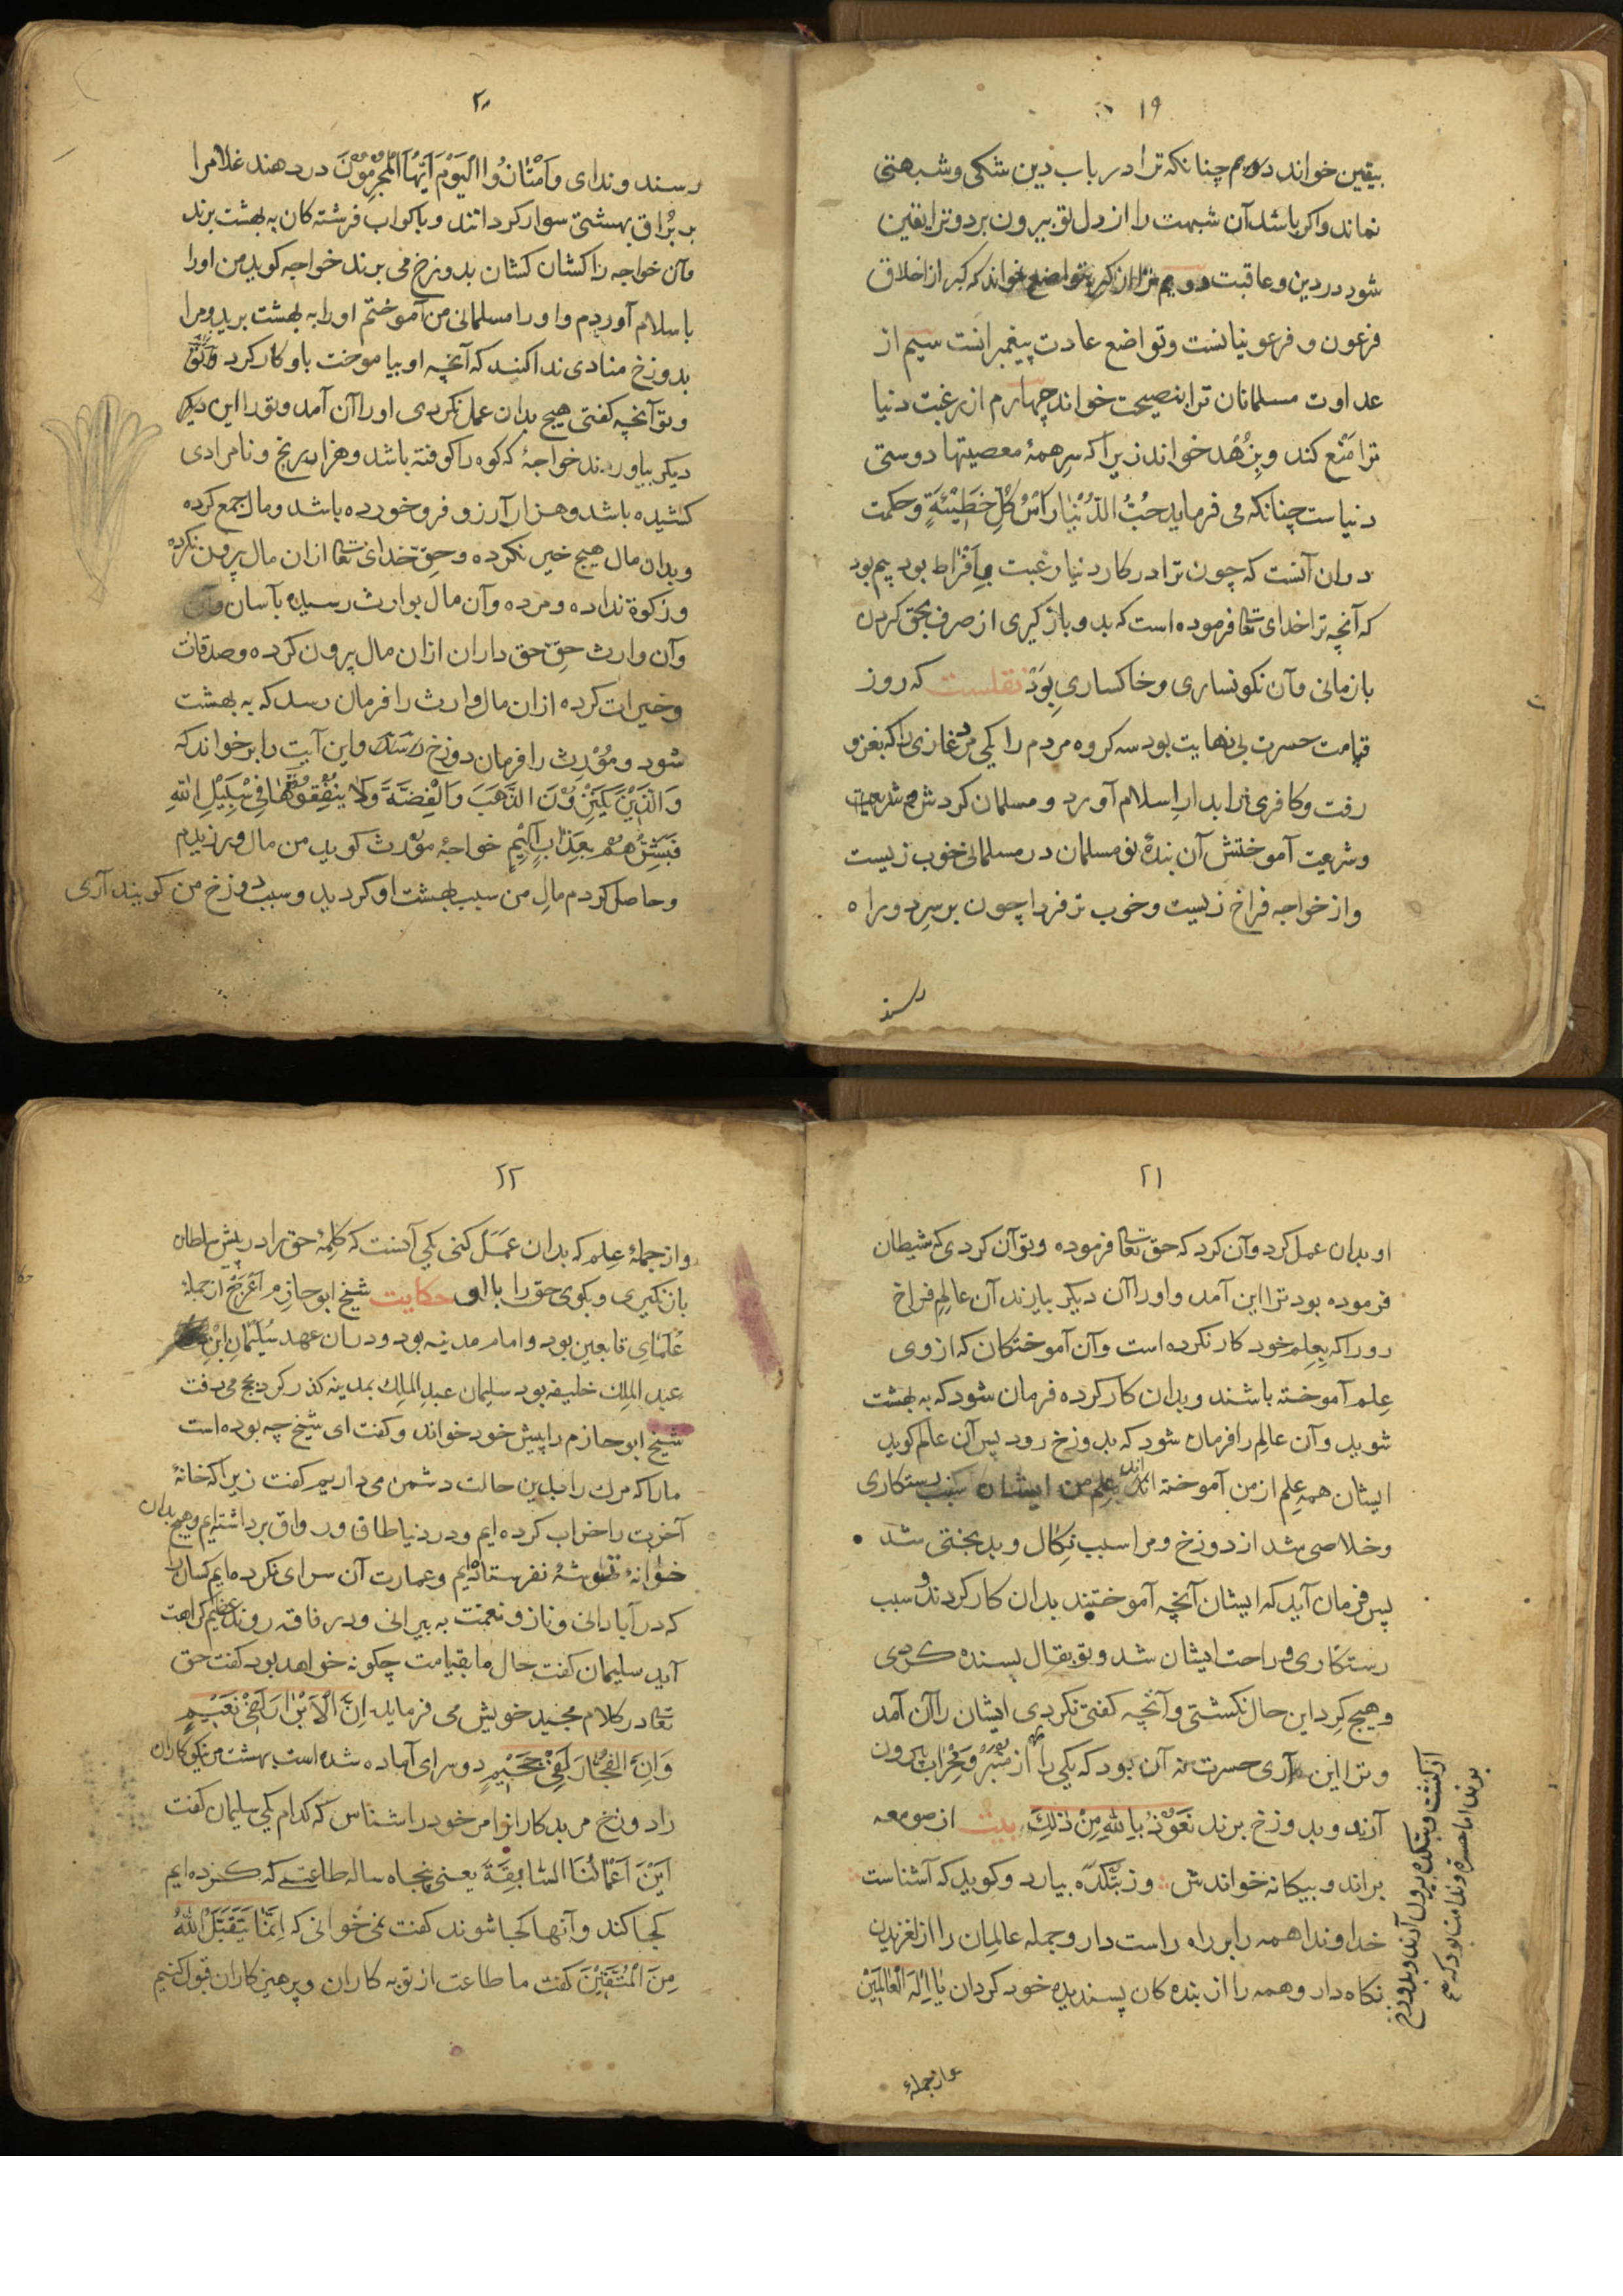 ۱۹
بیقین خواند دوم چنانکه ترا در باب دین شکی و شبهتی
نماند واکر باشد آن شبهت را از دل تو بیرون برد و ترا یقین
شود در دین و عاقبت دویم ترا از کبر بتواضع خواند که کبر از اخلاق
فرعون و فرعونیانست و تواضع عادت پیغمبرانست سیم از
عداوت مسلمانان ترا بنصیحت خواند چهارم از رغبت دنیا
ترا مَنْع کند و بزُهد خواند زیرا که سِر همهٔ معصیتها دوستی
دنیاست چنانکه می فرماید حُبُّ الدُّنْیَا رَاْسُ کُلِّ خَطِیْئَةٍ و حکمت
دران آنست که چون ترا در کار دنیا رغبت باِفْراط بود بیم بود
که آنچه ترا خدای تعا فرموده است که بد و بازکیری از صرف بحق کردن
بازمانی و آن نکونساری و خاکساری بوَدْ نقلست که روز
قیامت حسرت بی نهایت بود سه کروه مردم را یکی مرد غازی را که بغزو
رفت و کافری را بدار اِسلام آورد و مسلمان کردش و شریعت
و شریعت آموختش آن بندهٔ نو مسلمان در مسلمانی خوب زیست
و از خواجه فراخ زیست و خوب تر فردا چون بر سِر دو راه
رسند
۲۰
رسند و ندای وَاَمْتَازُوا الْیَوْمَ اَیُّهَا الْمُجْرِمُوْنَ در دهند غلامرا
بر بُراق بهشتی سوار کردانند و باکواب فرشته کان به بهشت برند
وآن خواجه را کشان کشان بدوزخ می برند خواجه کوید من اورا
باسلام آوردم و اورا مسلمانی من آموختم اورا به بهشت برید و مرا
بدوزخ منادی ندا کنند که آنچه او بیاموخت باو کار کرد
و تو آنچه کفتی هیچ بدان عمل نکردی اورا آن آمد و تورا این دیکر
دیکر بیاورند خواجهٔ که کوه را کوفته باشد و هزار برنج و نامرادی
کشیده باشد و هزار آرزو فرو خورده باشد و مال جمع کرده
و بدان مال هیچ خیر نکرده و حقّ خدای تعا ازان مال بیرون نکرده
و زکوة نداده و مرده و آن مال بوارث رسیده بآسان
و آن وارث حقّ حق داران ازان مال بیرون کرده و صدقات
و خیرات کرده ازان مال وارث را فرمان رسد که به بهشت
شود و مؤرث را فرمان دوزخ رسد و این آیت را برخواند که
وَالَّذِیْنَ یَکْنِزُوْنَ الذَّهَبَ وَالْفِضَّةَ وَلَا یُنْفِقُوْنَهَا فِیْ سَبِیْلِ اللهِ
فَبَشِّرْهُمْ بِعَذَابٍ اَلِیْمٍ خواجهٔ مؤرث کوید من مال ورزیدم
و حاصل کردم مالِ من سبب بهشت او کردید و سبب دوزخ من کویند آری
۲۱
او بدان عمل کرد و آن کرد که حق تعا فرموده و تو آن کردی که شیطان
فرموده بود ترا این آمد و اورا آن دیکر بیارند آن عالِمِ فراخ
رورا که بعِلم خود کار نکرده است و آن آموختکان که از وی
عِلم آموخته باشند و بدان کار کرده فرمان شود که به بهشت
شوید و آن عالِم را فرمان شود که بدوزخ رود پس آن عالم کوید
ایشان همه عِلم از من آموخته اند علم من ایشان سبب رستکاری
و خلاصی شد از دوزخ و مرا سبب نِکال و بدبختی شد
پس فرمان آید که ایشان آنچه آموختند بدان کار کردند و سبب
رستکاری و راحت ایشان شد و تو بقال بسنده کردی
و هیچ کِرد این حال نکشتی و آنچه کفتی نکردی ایشان را آن آمد
و ترا این آری حسرت نه آن بود که یکی را از منبر و محراب بیرون
آرند و بدوزخ برند نَعُوْذُ بِاللهِ مِنْ ذٰلِکَ بیت از صومعه
براند و بیکانه خواندش وز بتکده بیارد و کوید که آشناست
خداوندا همه را بر راه راست دار و جمله عالِمان را از لغزیدن
نکاه دار و همه را از بنده کان پسندیده خود کردان یَا اِلٰهَ الْعَالَمِیْنَ
از کنشت و بتکده بیرون آرند و بدوزخ
برند اما حسرت و ندامت بود که
و از جملهٔ
۲۲
و از جملهٔ عِلم که بدان عَمَل کنی یکی آنست که کلِمهٔ حق را در پیش سلطان
بازنکیری و بکوی حق را با او حکایت شیخ ابو حازم اَعْرج از جملهٔ
عُلَمَایِ تابعین بود و امام مدینه بود و دران عهد سُلَیْمَان ابْنِ
عبد المِلک خلیفه بود سلیمان عبد المِلک بمدینه کذر کرد بحج می رفت
شیخ ابو حازم را پیش خود خواند و کفت ای شیخ چه بوده است
مارا که مرك را بدین حالت دشمن می داریم کفت زیرا که خانهٔ
آخرت را خراب کرده ایم و در دنیا طاق و رواق برداشته ایم و هیچ بدان
خوانهٔ توشهٔ نفرستاده ایم و عمارت آن سرای نکرده ایم کسان را
که در آبادانی و ناز و نعمت به بیرانی و در فاقه روند عظیم کراهت
آید سلیمان کفت حال ما بقیامت چکونه خواهد بود کفت حق
تعا در کلام مجید خویش می فرماید اِنَّ الْاَبْرَارَ لَفِیْ نَعِیْمٍ
وَاِنَّ الفُجَّارَ لَفِیْ جَحِیْمٍ دو سرای آماده شده است بهشت مر نیکو کاران
را و دوزخ مر بدکارانرا مر خود را شناس که کدام یکی سلیمان کفت
اَیْنَ اَعْمَالُنَا السَّابِقَةَ یعنی پنجاه ساله طاعت که کرده ایم
کجا کند و آنها کجا شوند کفت نمی خوانی که اِنَّمَا یَتَقَبَّلُ اللهُ
مِنَ الْمُتَّقِیْنَ کفت ما طاعت از توبه کاران و پرهیزکاران قبول کنیم